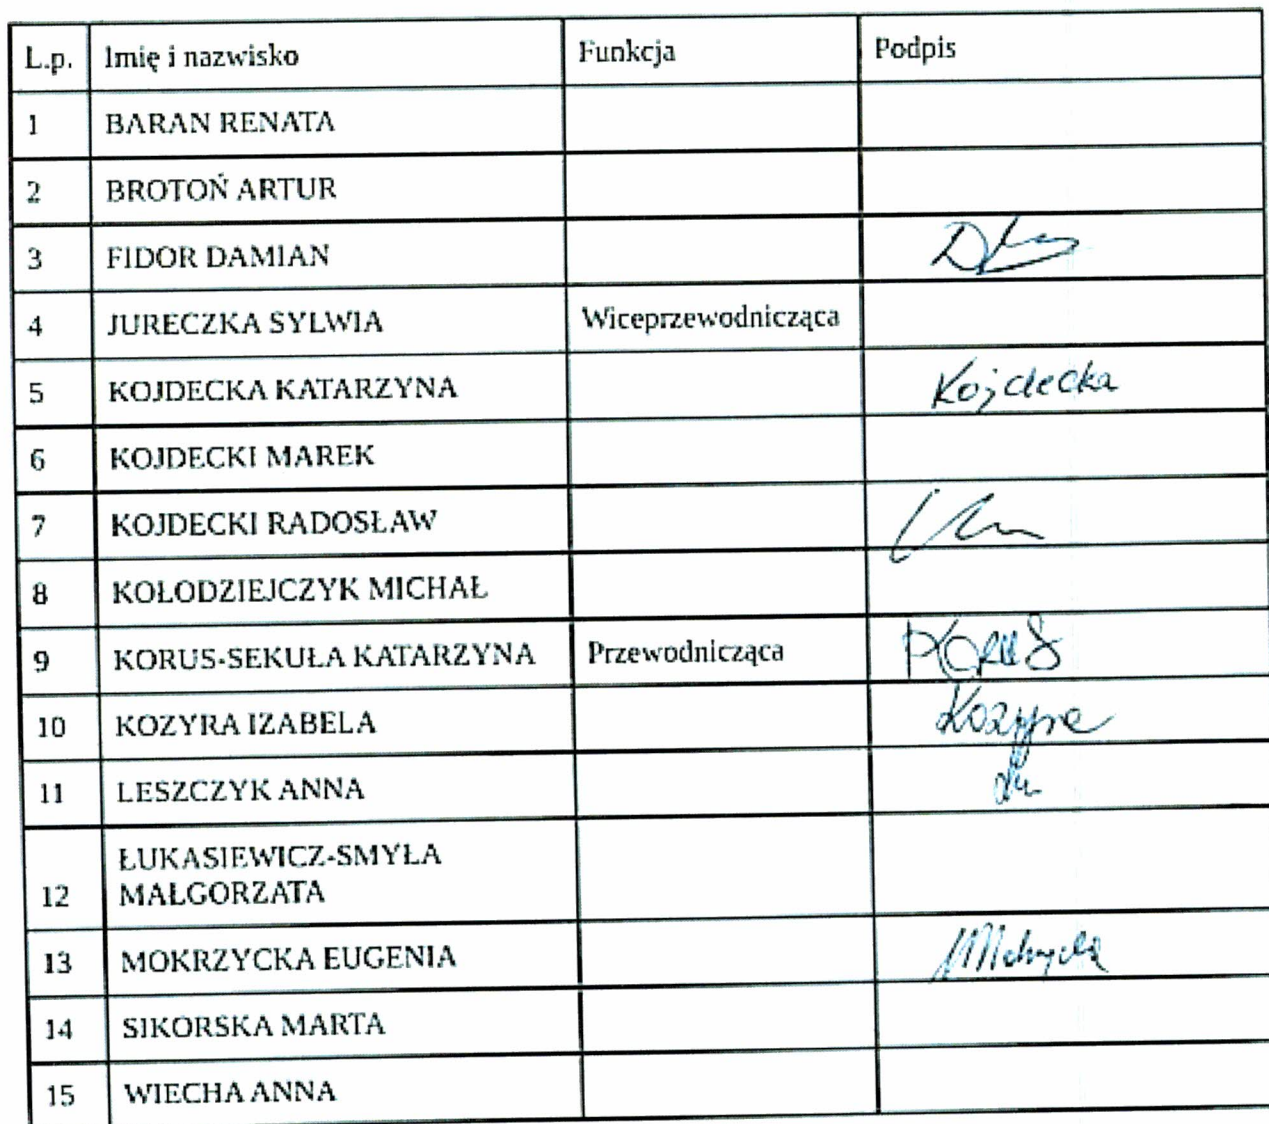 L.p. Imię i nazwisko Funkcja Podpis
1 BARAN RENATA
2 BROTOŃ ARTUR
3 FIDOR DAMIAN
4 JURECZKA SYLWIA Wiceprzewodnicząca
5 KOJDECKA KATARZYNA Kojdecka
6 KOJDECKI MAREK
7 KOJDECKI RADOSŁAW
8 KOLODZIEJCZYK MICHAŁ
9 KORUS-SEKUŁA KATARZYNA Przewodnicząca
10 KOZYRA IZABELA Kozyra
11 LESZCZYK ANNA
ŁUKASIEWICZ-SMYŁA
12 MAŁGORZATA
13 MOKRZYCKA EUGENIA
14 SIKORSKA MARTA
15 WIECHA ANNA